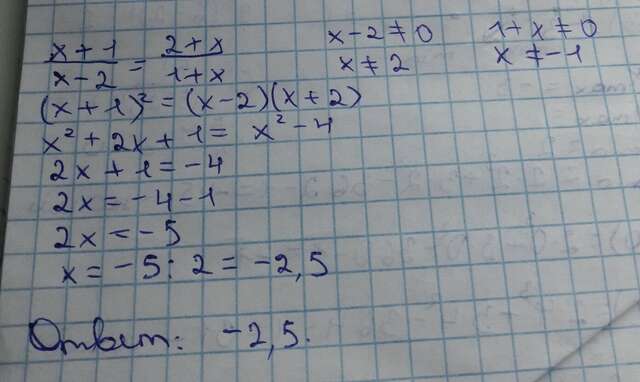 x + 1 / x - 2 = 2 + x / 1 + x
x - 2 ≠ 0
x ≠ 2
1 + x ≠ 0
x ≠ -1
(x + 1)² = (x - 2)(x + 2)
x² + 2x + 1 = x² - 4
2x + 1 = -4
2x = -4 - 1
2x = -5
x = -5 : 2 = -2,5
Ответ: -2,5.